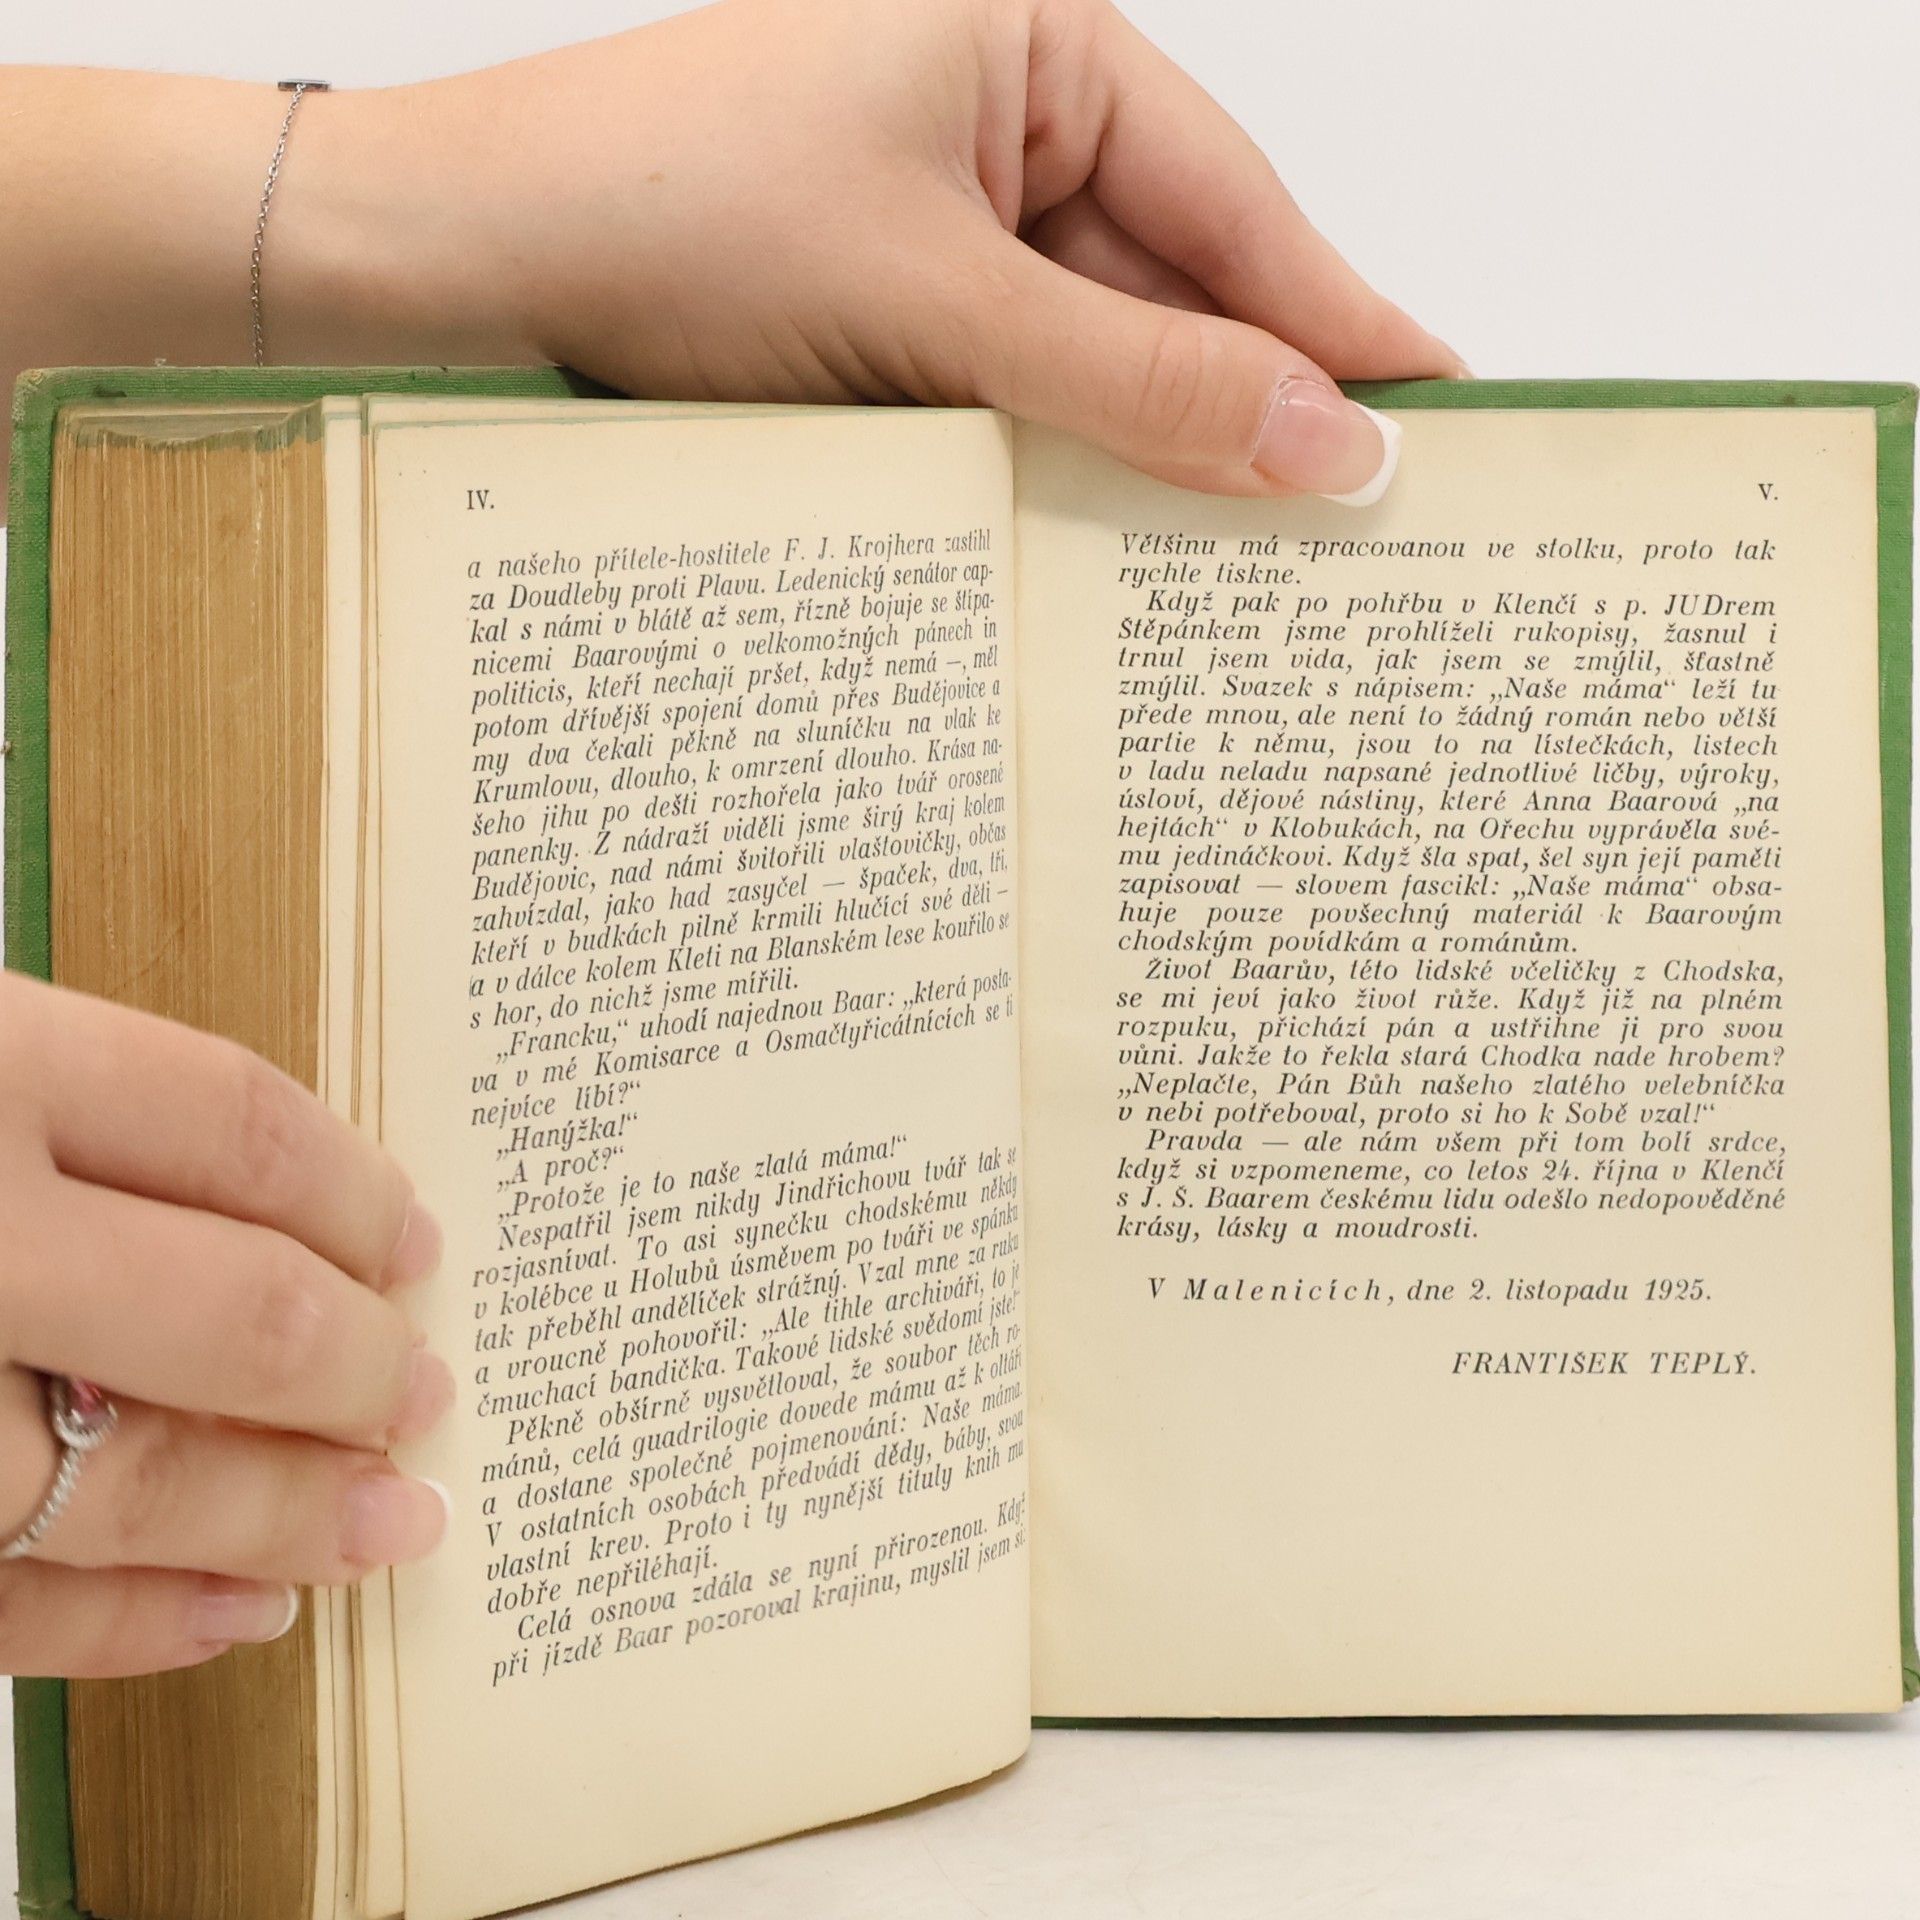 IV.
a našeho přítele-hostitele F. J. Krojhera zastihl
za Doudleby proti Plavu. Ledenický senátor cap-
kal s námi v blátě až sem, řízně bojuje se štípa-
nicemi Baarovými o velkomožných pánech in
politicis, kteří nechají pršet, když nemá —, měl
potom dřívější spojení domů přes Budějovice a
my dva čekali pěkně na sluníčku na vlak ke
Krumlovu, dlouho, k omrzení dlouho. Krása na-
šeho jihu po dešti rozhořela jako tvář orosené
panenky. Z nádraží viděli jsme širý kraj kolem
Budějovic, nad námi švitořili vlaštovičky, občas
zahvízdal, jako had zasyčel — špaček, dva, tři,
kteří v budkách pilně krmili hlučící své děti —
a v dálce kolem Kleti na Blanském lese kouřilo se
s hor, do nichž jsme mířili.
„Francku,“ uhodí najednou Baar: „která posta-
va v mé Komisarce a Osmačtyřicátnících se ti
nejvíce líbí?“
„Hanýžka!“
„A proč?“
„Protože je to naše zlatá máma!“
Nespatřil jsem nikdy Jindřichovu tvář tak se
rozjasnívat. To asi synečku chodskému někdy
v kolébce u Holubů úsměvem po tváři ve spánku
tak přeběhl andělíček strážný. Vzal mne za ruku
a vroucně pohovořil: „Ale tihle archiváři, to je
čmuchací bandička. Takové lidské svědomí jste!“
Pěkně obšírně vysvětloval, že soubor těch ro-
mánů, celá guadrilogie dovede mámu až k oltáři
a dostane společné pojmenování: Naše máma.
V ostatních osobách předvádí dědy, báby, svou
vlastní krev. Proto i ty nynější tituly knih mu
dobře nepřiléhají.
Celá osnova zdála se nyní přirozenou. Když
při jízdě Baar pozoroval krajinu, myslil jsem si:
V.
Většinu má zpracovanou ve stolku, proto tak
rychle tiskne.
Když pak po pohřbu v Klenčí s p. JUDrem
Štěpánkem jsme prohlíželi rukopisy, žasnul i
trnul jsem vida, jak jsem se zmýlil, šťastně
zmýlil. Svazek s nápisem: „Naše máma“ leží tu
přede mnou, ale není to žádný román nebo větší
partie k němu, jsou to na lístečkách, listech
v ladu neladu napsané jednotlivé ličby, výroky,
úsloví, dějové nástiny, které Anna Baarová „na
hejtách“ v Klobukách, na Ořechu vyprávěla své-
mu jedináčkovi. Když šla spat, šel syn její paměti
zapisovat — slovem fascikl: „Naše máma“ obsa-
huje pouze povšechný materiál k Baarovým
chodským povídkám a románům.
Život Baarův, této lidské včeličky z Chodska,
se mi jeví jako život růže. Když již na plném
rozpuku, přichází pán a ustřihne ji pro svou
vůni. Jakže to řekla stará Chodka nade hrobem?
„Neplačte, Pán Bůh našeho zlatého velebníčka
v nebi potřeboval, proto si ho k Sobě vzal!“
Pravda — ale nám všem při tom bolí srdce,
když si vzpomeneme, co letos 24. října v Klenčí
s J. Š. Baarem českému lidu odešlo nedopověděné
krásy, lásky a moudrosti.
V Malenicích, dne 2. listopadu 1925.
FRANTIŠEK TEPLÝ.